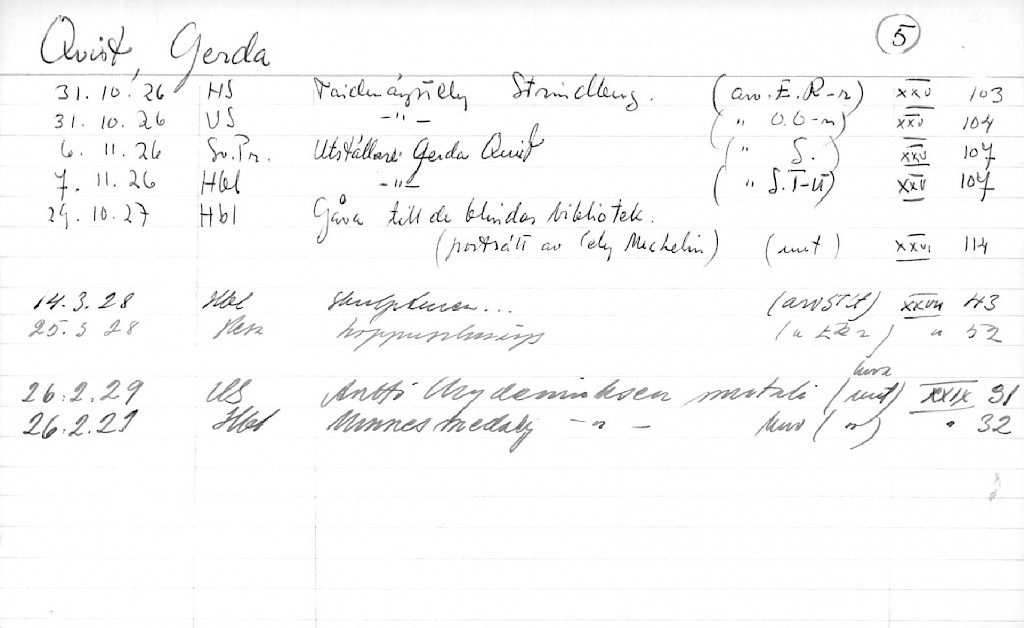 Qvist, Gerda 5
31.10.26 HS Taidenäyttely Strindberg. (arv. E.R-r) XXV 103
31.10.26 US -"- (" O.O-n) XXV 104
6.11.26 Sv.Pr. Utställare Gerda Qvist (" S.) XXV 107
7.11.26 Hbl -"- (" S.T-ll) XXV 107
29.10.27 Hbl Gåva till de blindas bibliotek.
(porträtt av Cely Mechelin) (not) XXVI 114
14.3.28 Hbl Skulpturen... XXVII 43
25.3 28 " 52
kuva
26.2.29 US Antti Chydeniuksen mitali XXIX 31
26.2.29 Hbl Minnesmedalj -"- " 32